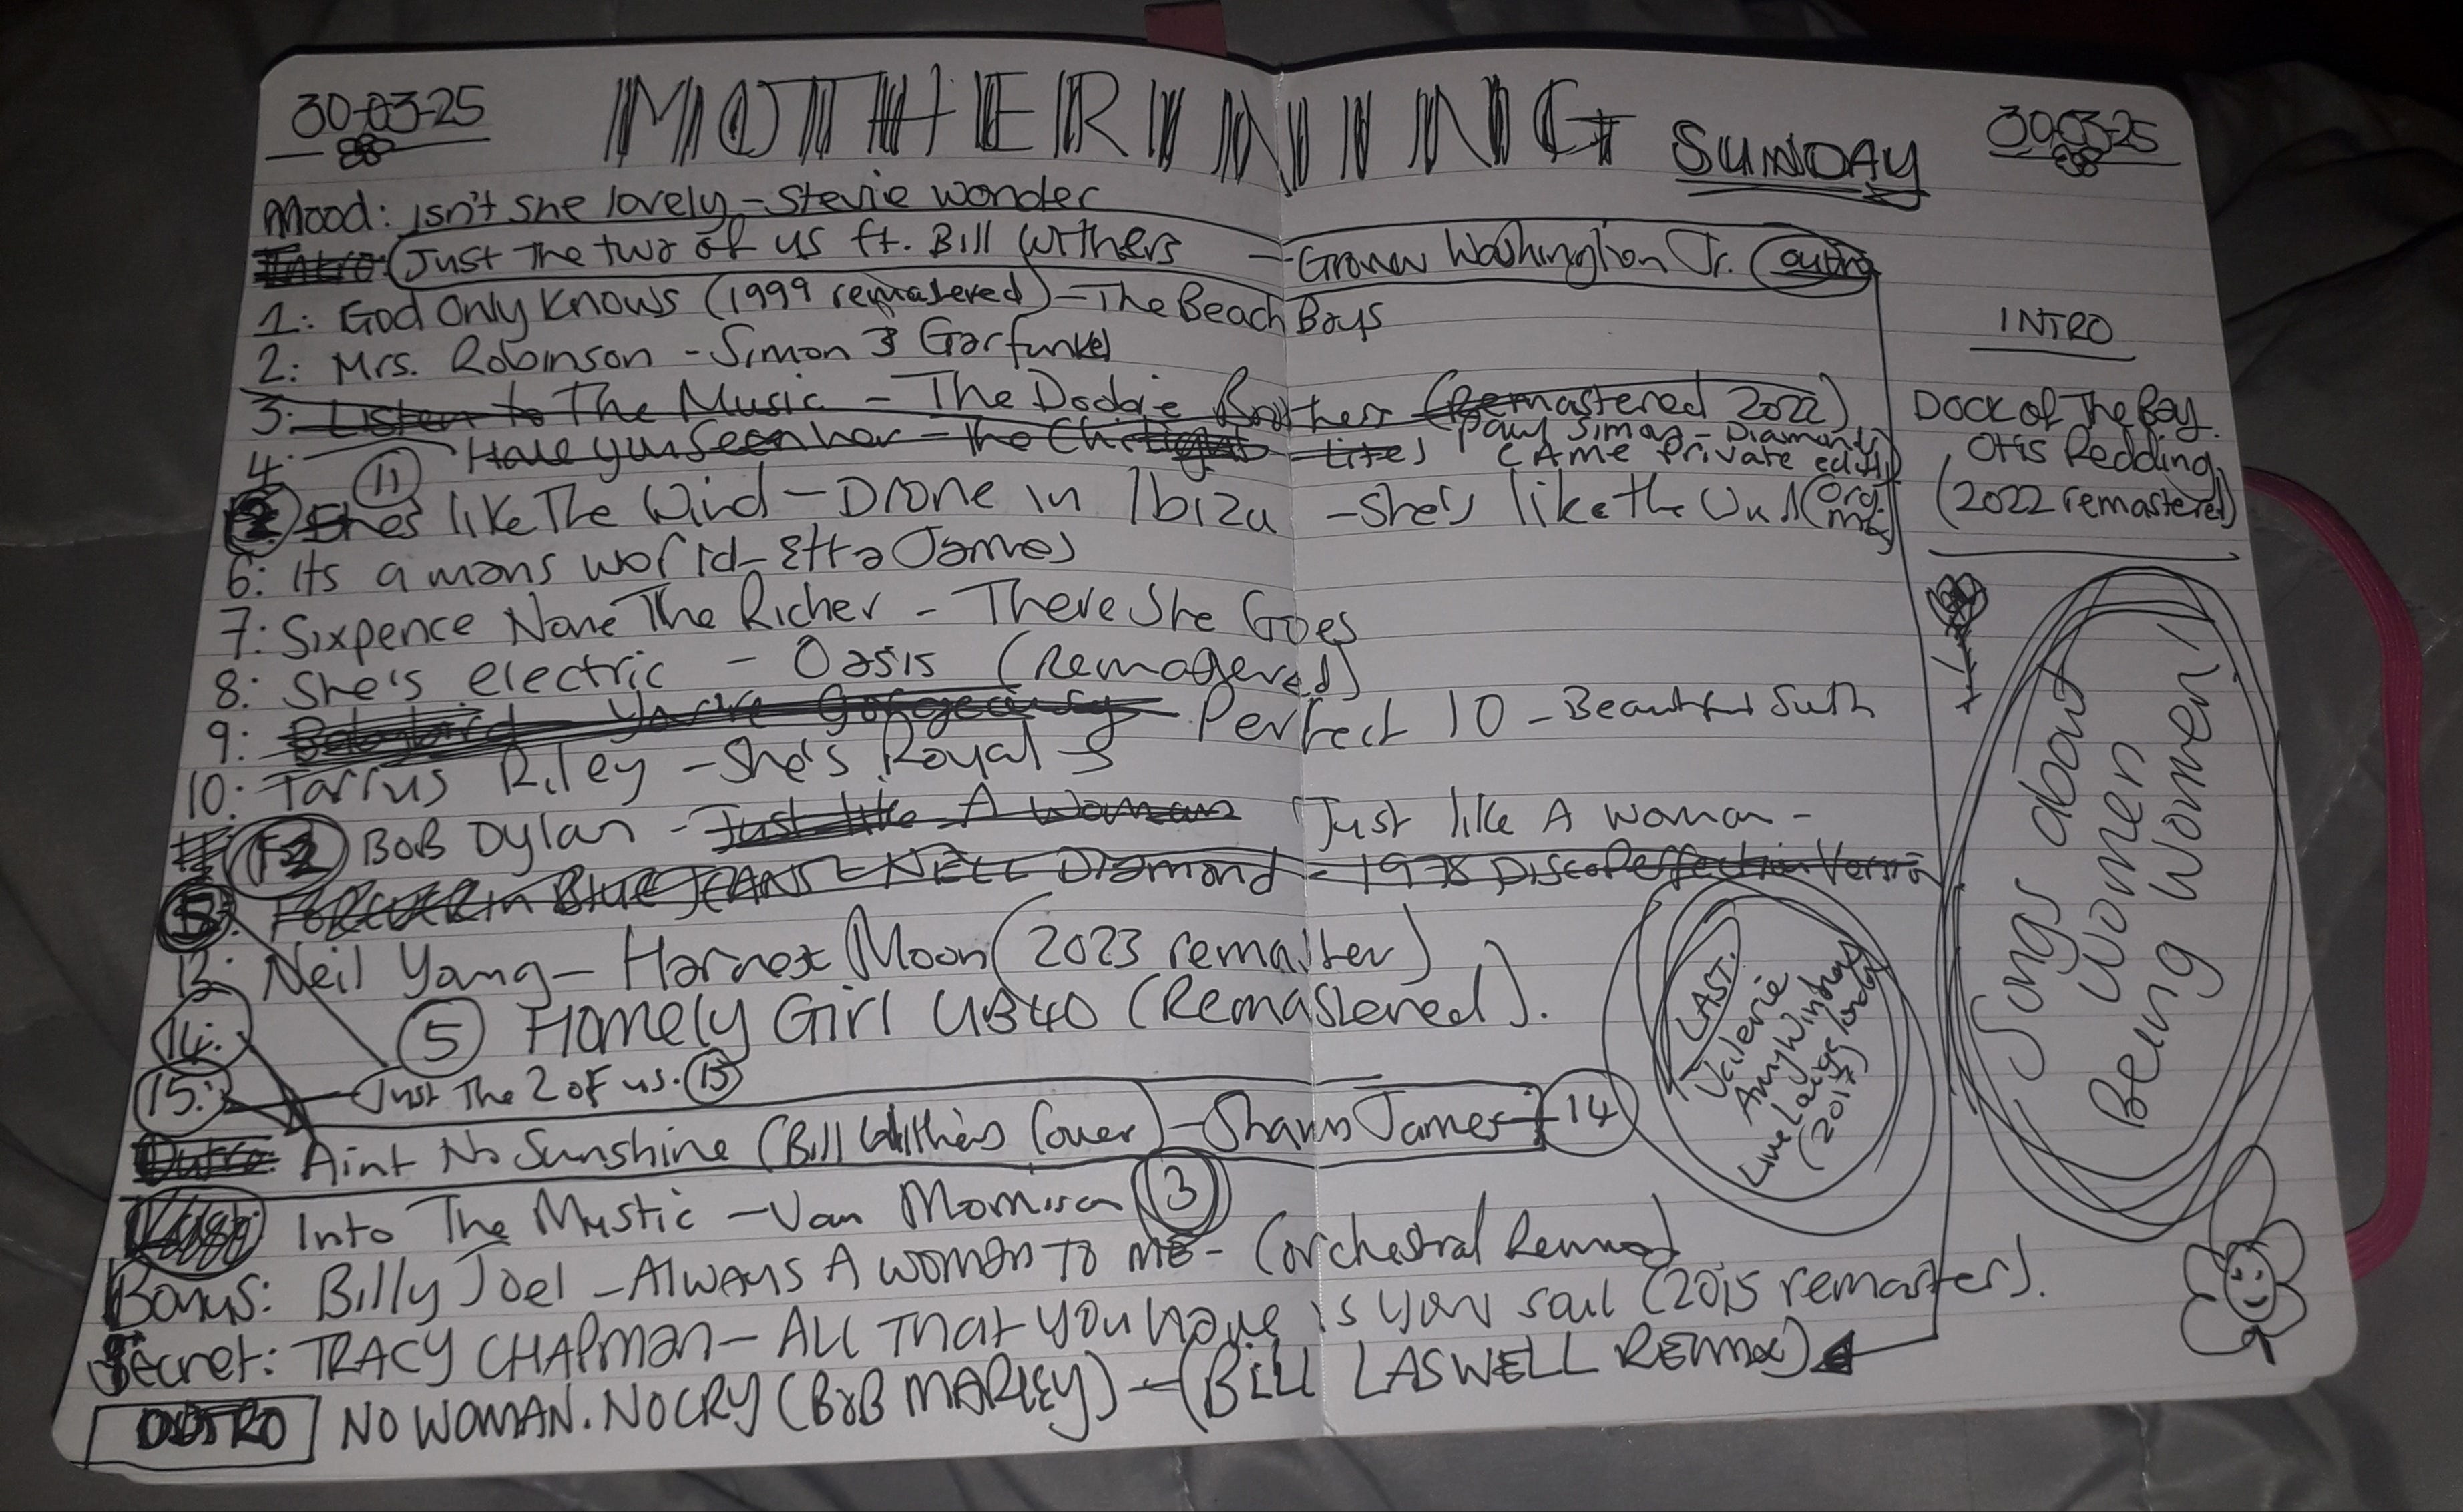 30-03-25
MOTHERINING SUNDAY
30-03-25
Mood: isn't she lovely - Stevie wonder
Intro: Just The two of us ft. Bill Withers - Grover Washington Jr. outro
1: God Only Knows (1999 remastered) - The Beach Boys
2: Mrs. Robinson - Simon & Garfunkel
3: Listen to The Music - The Doobie Brothers (Remastered 2022)
4: Have you seen her - The Chi Lites Paul Simon - Diamonds
(Ame Private edit)
11 She's like The Wind - Drone in Ibiza - She's like the Wind (Org. mix)
6: Its a mans world - Etta James
7: Sixpence None The Richer - There She Goes
8: She's electric - Oasis (Remastered)
9: Babybird You're Gorgeous Perfect 10 - Beautiful Sth
10: Tarrus Riley - She's Royal
12 BoB Dylan - Just like A Woman Just like A woman -
FOREVER In BLUE JEANS - NEIL Diamond - 1978 Disco Perfection Version
13: Neil Young - Harvest Moon (2023 remaster)
14: 5 Homely Girl UB40 (Remastered).
15: Just The 2 of us. 15
Outro: Aint No Sunshine (Bill Withers Cover) - Shawn James - 14
Into The Mystic - Van Morrison 3
Bonus: Billy Joel - ALWAYS A WOMAN TO ME - (orchestral
Secret: TRACY CHAPMAN - ALL THAT YOU have is your soul (2015 remaster).
OUTRO NO WOMAN. NO CRY (BOB MARLEY) - (BILL LASWELL REMIX)
INTRO
DOCK of The Bay.
Otis Redding
(2022 remastered)
Songs about
Women
Being Women!
LAST.
Valerie
Amy Winehouse
Live Lounge
(2017)